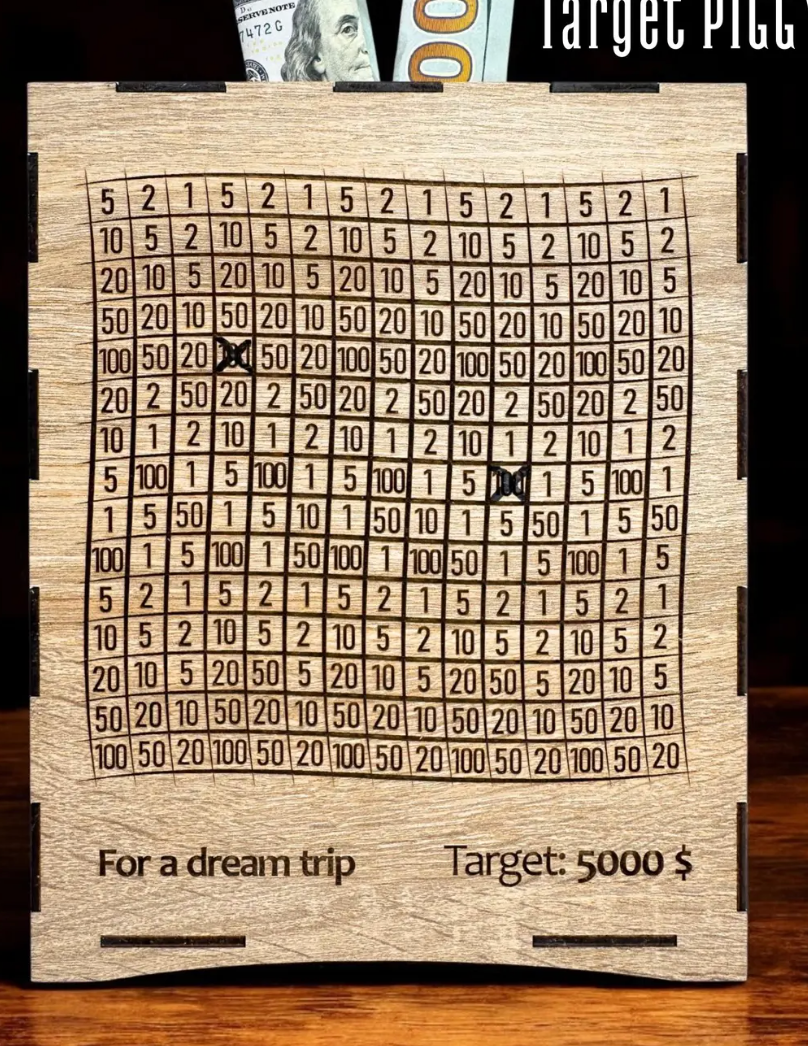 SERVE NOTE
7472G
Target PIGGY
5 2 1 5 2 1 5 2 1 5 2 1 5 2 1
10 5 2 10 5 2 10 5 2 10 5 2 10 5 2
20 10 5 20 10 5 20 10 5 20 10 5 20 10 5
50 20 10 50 20 10 50 20 10 50 20 10 50 20 10
100 50 20 50 20 100 50 20 100 50 20 100 50 20
20 2 50 20 2 50 20 2 50 20 2 50 20 2 50
10 1 2 10 1 2 10 1 2 10 1 2 10 1 2
5 100 1 5 100 1 5 100 1 5 100 1 5 100 1
1 5 50 1 5 10 1 50 10 1 5 50 1 5 50
100 1 5 100 1 50 100 1 100 50 1 5 100 1 5
5 2 1 5 2 1 5 2 1 5 2 1 5 2 1
10 5 2 10 5 2 10 5 2 10 5 2 10 5 2
20 10 5 20 50 5 20 10 5 20 50 5 20 10 5
50 20 10 50 20 10 50 20 10 50 20 10 50 20 10
100 50 20 100 50 20 100 50 20 100 50 20 100 50 20
For a dream trip Target: 5000 $